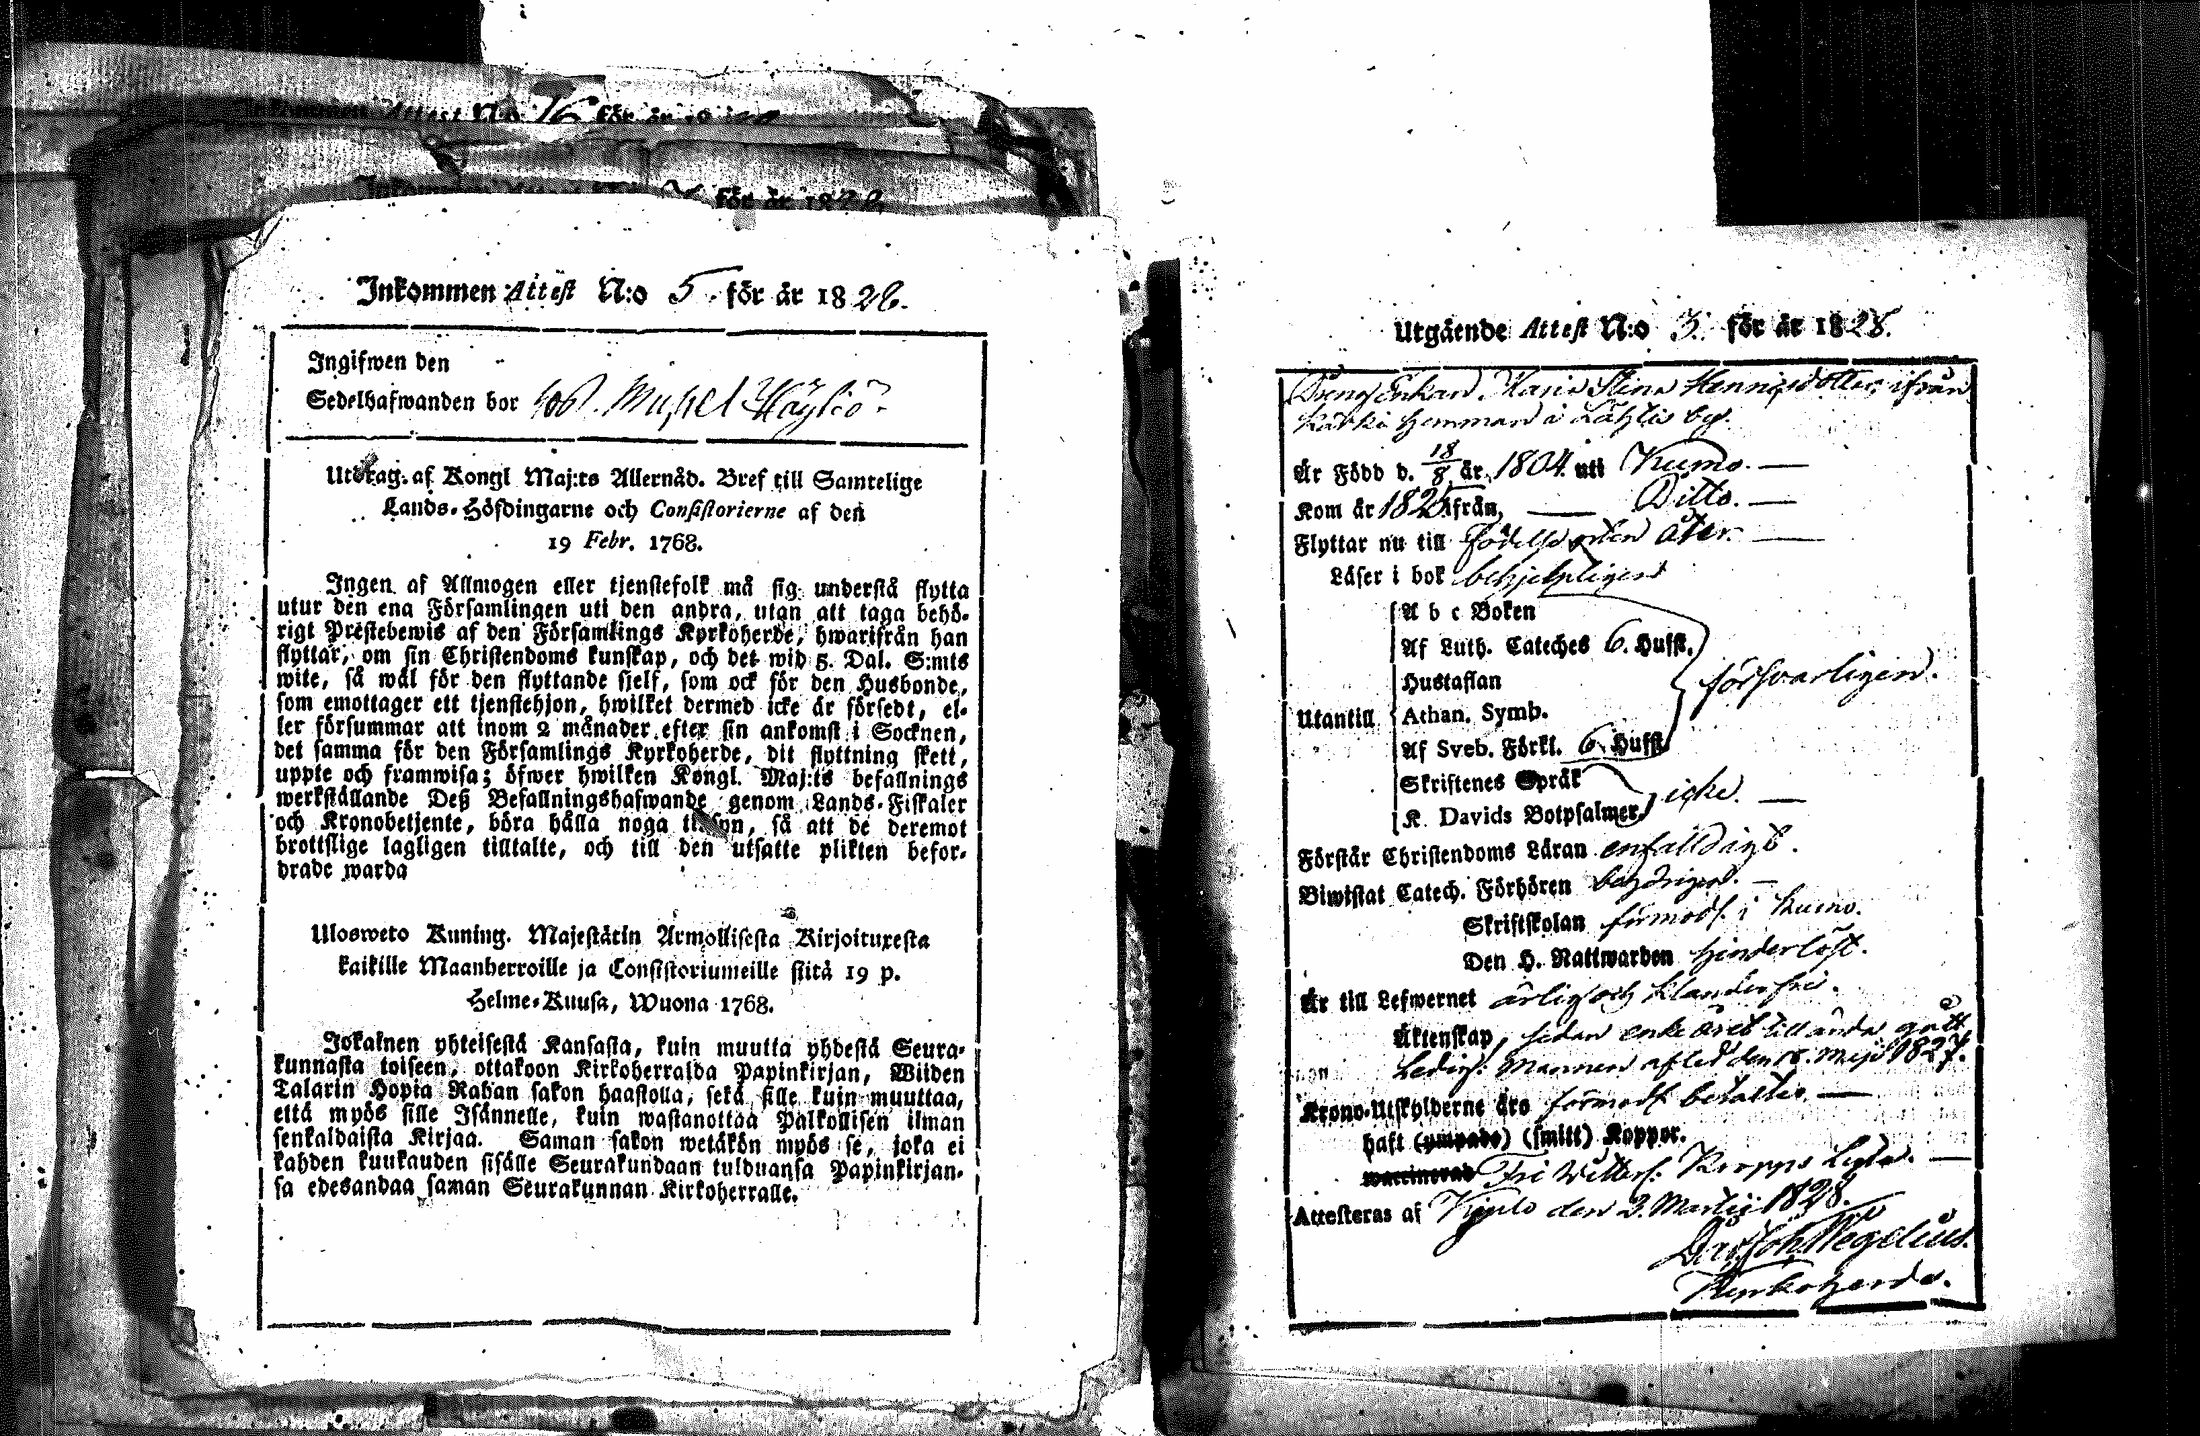 Inkommen Attest N:o 16 för är 18
för är 1828.
Inkommen Attest N:o 5. för är 1828.
Ingifwen den
Sedelhafwanden bor
Utdrag af Kongl Maj:ts Allernåd. Bref till Samtelige
Lands-Höfdingarne och Consistorierne af den
19 Febr. 1768.
Ingen af Allmogen eller tjenstefolk må sig understå flytta
utur den ena Församlingen uti den andra, utan att taga behö-
rigt Prestebewis af den Församlings Kyrkoherde, hwarifrån han
flyttar, om sin Christendoms kunskap, och det wid 5. Dal. S:mts
wite, så wäl för den flyttande sjelf, som ock för den Husbonde,
som emottager ett tjenstehjon, hwilket dermed icke är försedt, el-
ler försummar att inom 2 månader efter sin ankomst i Socknen,
det samma för den Församlings Kyrkoherde, dit flyttning skett,
uppte och framwisa; öfwer hwilken Kongl. Maj:ts befallnings
werkställande Deß Befallningshafwande genom Lands-Fiskaler
och Kronobetjente, böra hålla noga tilsyn, så att de deremot
brottslige lagligen tilltalte, och till den utsatte plikten befor-
drade warda
Ulosweto Kuning. Majestätin Armollisesta Kirjoituxesta
kaikille Maanherroille ja Consistoriumeille siitä 19 p.
Helme-Kuusa, Wuona 1768.
Jokainen yhteisestä Kansasta, kuin muutta yhdestä Seura-
kunnasta toiseen, ottakoon Kirkoherralda Papinkirjan, Wiiden
Talarin Hopia Rahan sakon haastolla, sekä sille kuin muuttaa,
että myös sille Isännelle, kuin wastanottaa Palkollisen ilman
senkaldaista Kirjaa. Saman sakon wetäkön myös se, joka ei
kahden kuukauden sisälle Seurakundaan tulduansa Papinkirjan-
sa edesandaa saman Seurakunnan Kirkoherralle.
Utgående Attest N:o 3. för är 1828.
Dreng Enkan Maria Stina Henrigsdotter, ifrån
Kärki Hemman i by.
Är Född d. 18/8 är 1804 uti Kumo. —
Kom är 1825 ifrån, — Ditto. —
Flyttar nu till födelse orten åter. —
Läser i bok behjelpligen
A b c Boken
Af Luth. Cateches 6. Hufst.
Hustaflan
försvarligen.
Utantill Athan. Symb.
Af Sveb. Förkl. 6. Hufst.
Skriftenes Språk
K. Davids Botpsalmer icke. —
Förstår Christendoms Läran enfaldigt.
Biwistat Catech. Förhören behörigen. —
Skriftskolan förmodl. i Kumo.
Den H. Nattwarden hinderlöst.
Är till Lefwernet ärlig och klanderfri.
Äktenskap, sedan enke året till ända gått,
Ledig: Mannen afled den 18. Maji 1827.
Krono-Utskylderne äro förmodl betalte —
haft (ympade) (smitt) Koppor.
waccinerad Fri Wetterl. Kropps Lyte. —
Attesteras af Kjulo den 2. Martii 1828.
Joh Wegelius.
Kyrkoherde.